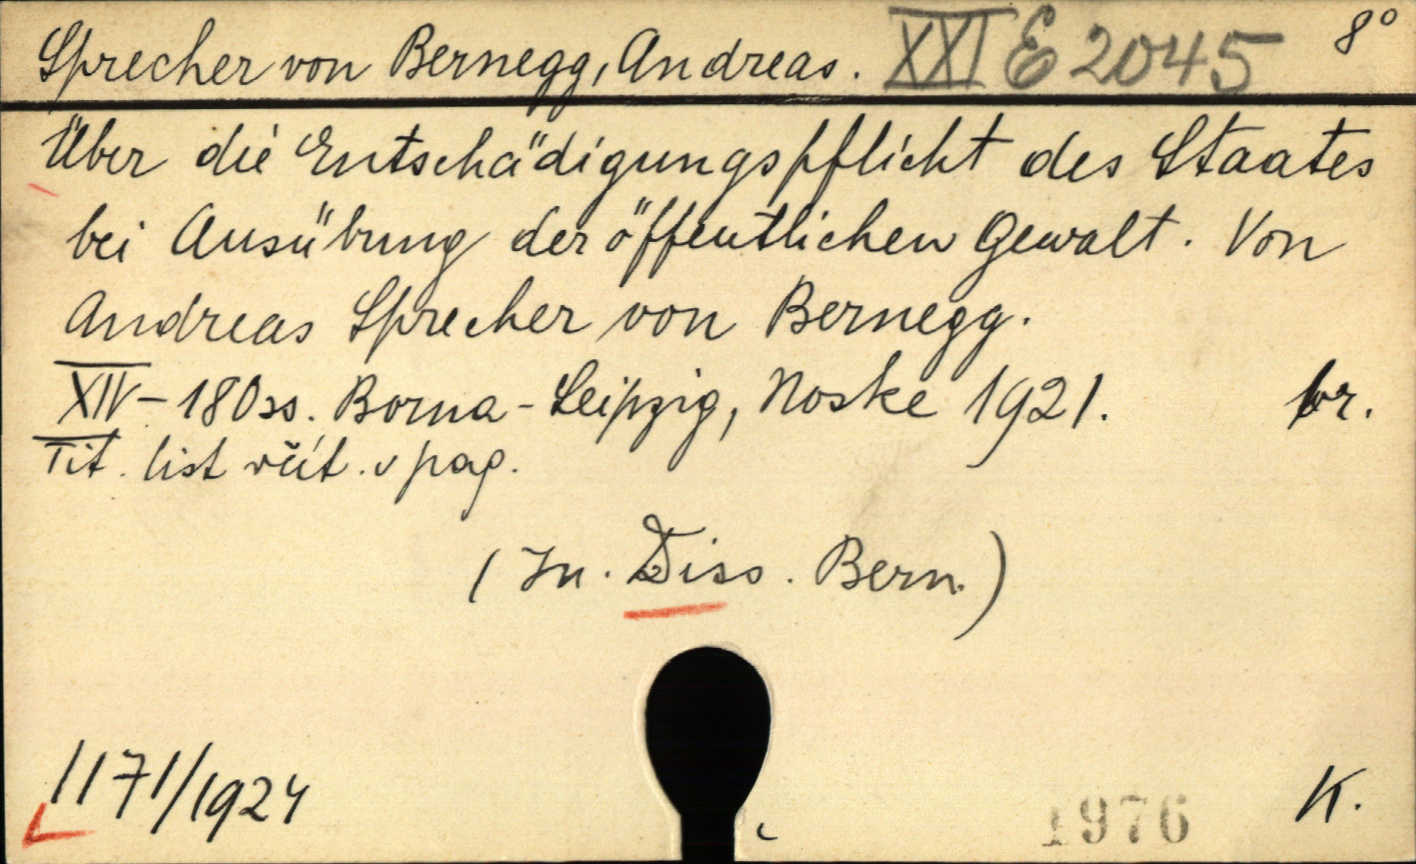 Sprecher von Bernegg, Andreas. XXI E 2045 8°
Über die Entschädigungspflicht des Staates
bei Ausübung der öffentlichen Gewalt. Von
Andreas Sprecher von Bernegg.
XIV - 180 ss. Borna - Leipzig, Noske 1921. br.
Tit. list včít. v pag.
(In. Diss. Bern.)
1171/1924
1976 K.